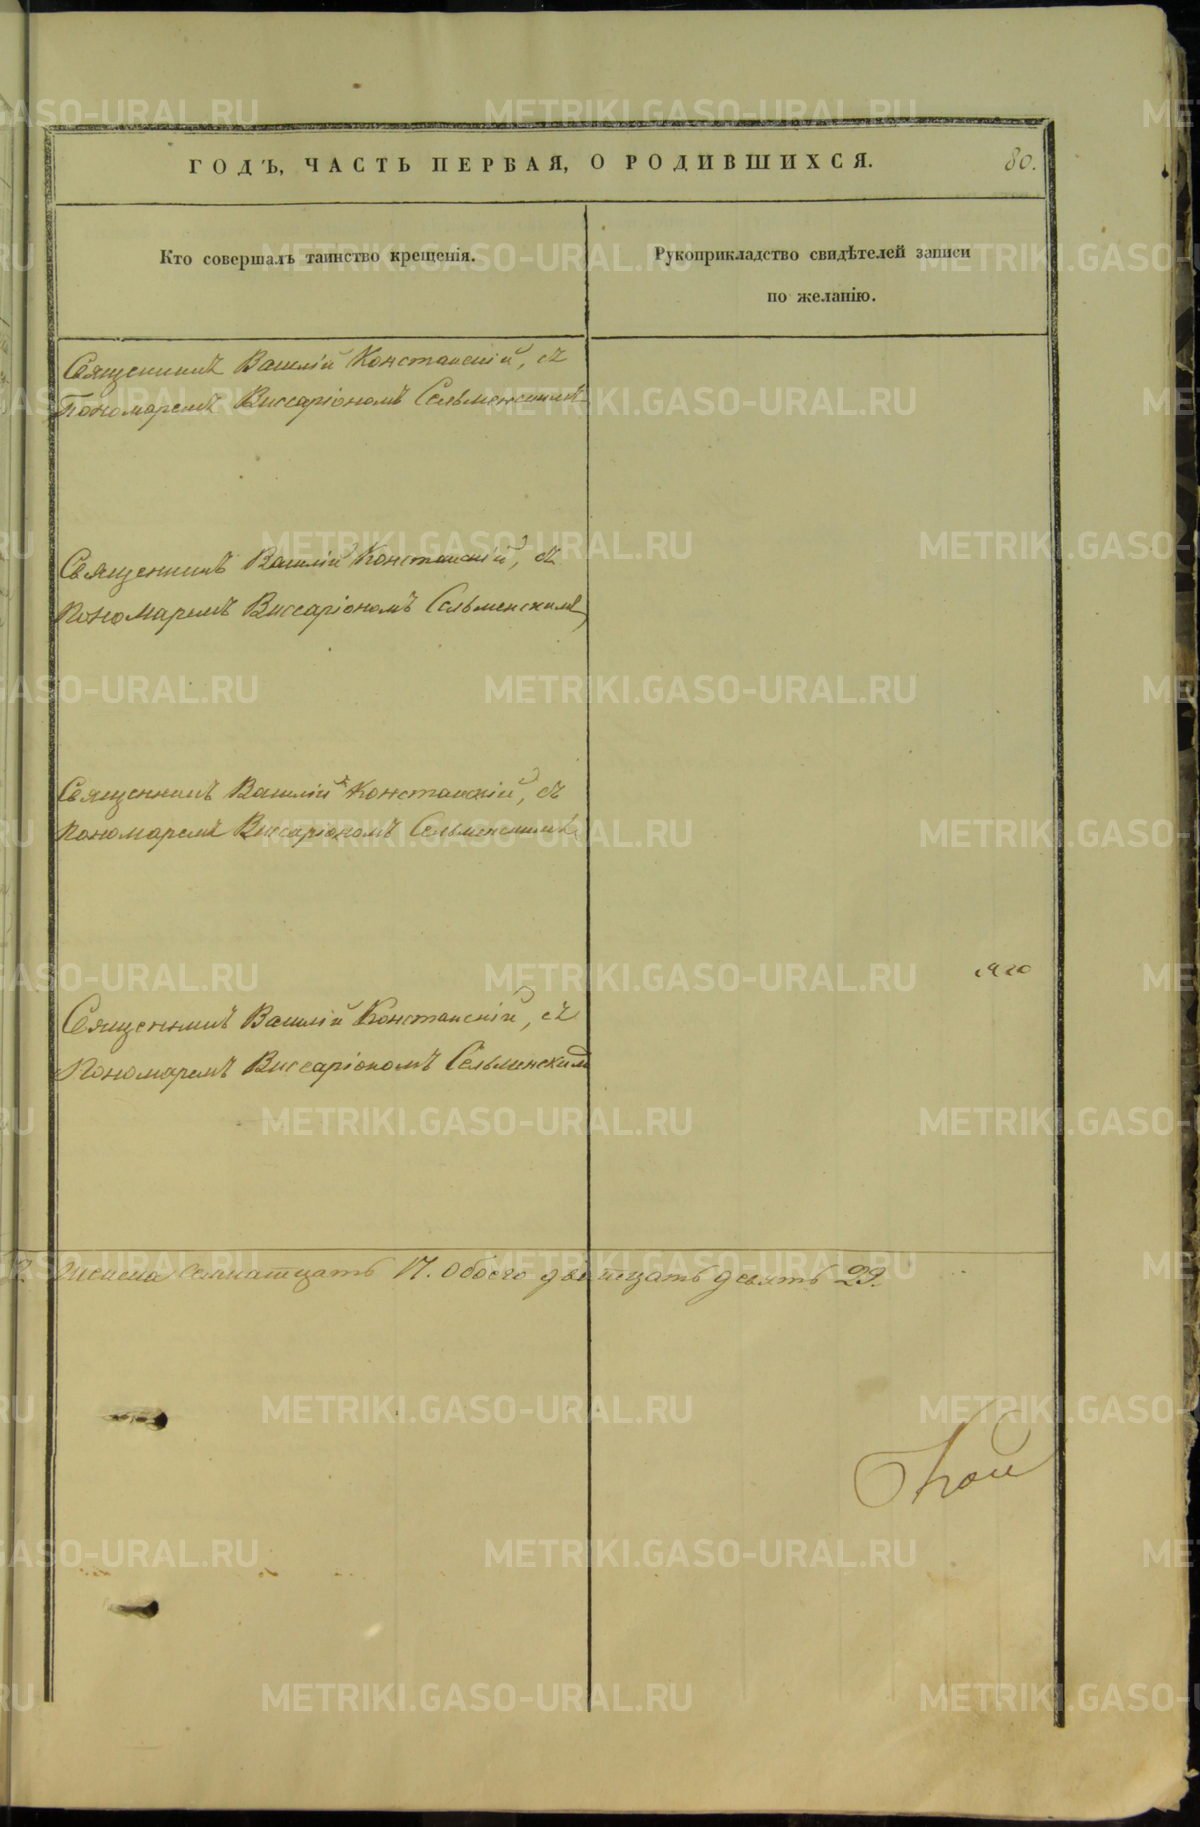 ГОДЪ, ЧАСТЬ ПЕРВАЯ, О РОДИВШИХСЯ. 80.
Кто совершалъ таинство крещенія.
Рукоприкладство свидѣтелей записи
по желанію.
Священникъ Василій Констанскій, съ
Пономаремъ Виссаріономъ Сельменскимъ
Священникъ Василій Констанскій, съ
Пономаремъ Виссаріономъ Сельменскимъ
Священникъ Василій Констанскій, съ
Пономаремъ Виссаріономъ Сельменскимъ
Священникъ Василій Констанскій, съ
Пономаремъ Виссаріономъ Сельменскимъ
женска семнатцать 17. Обоего дватцать девять 29.
METRIKI.GASO-URAL.RU